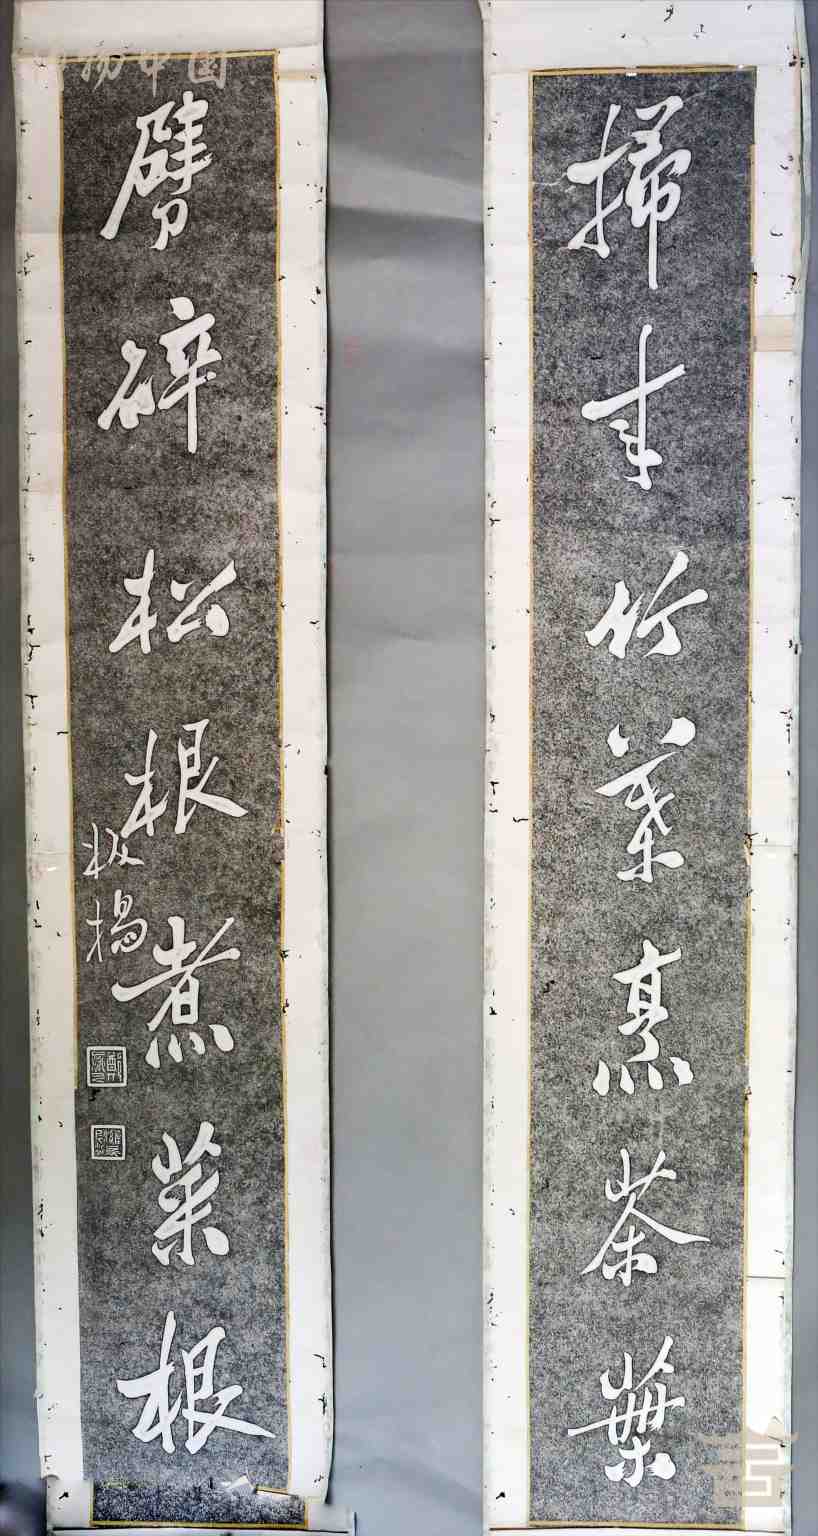 掃來竹葉烹茶葉
劈碎松根煮菜根
板橋
鄭燮